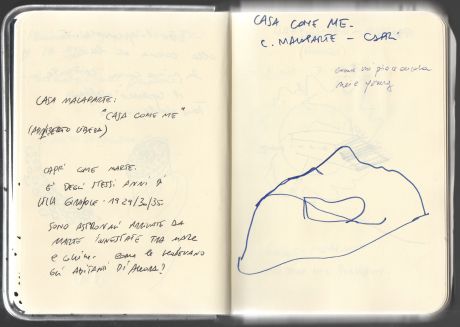 CASA MALAPARTE:
"CASA COME ME"
(ADALBERTO LIBERA)
CAPRI COME MARTE.
E' DEGLI STESSI ANNI DI
VILLA GIRASOLE. 1929/30/35
SONO ASTRONAVI ARRIVATE DA
MARTE INNESTATE TRA MARE
E
COME LE VEDEVANO
GLI ABITANTI D'ALLORA?
CASA COME ME.
C. MALAPARTE - CAPRI
come mi